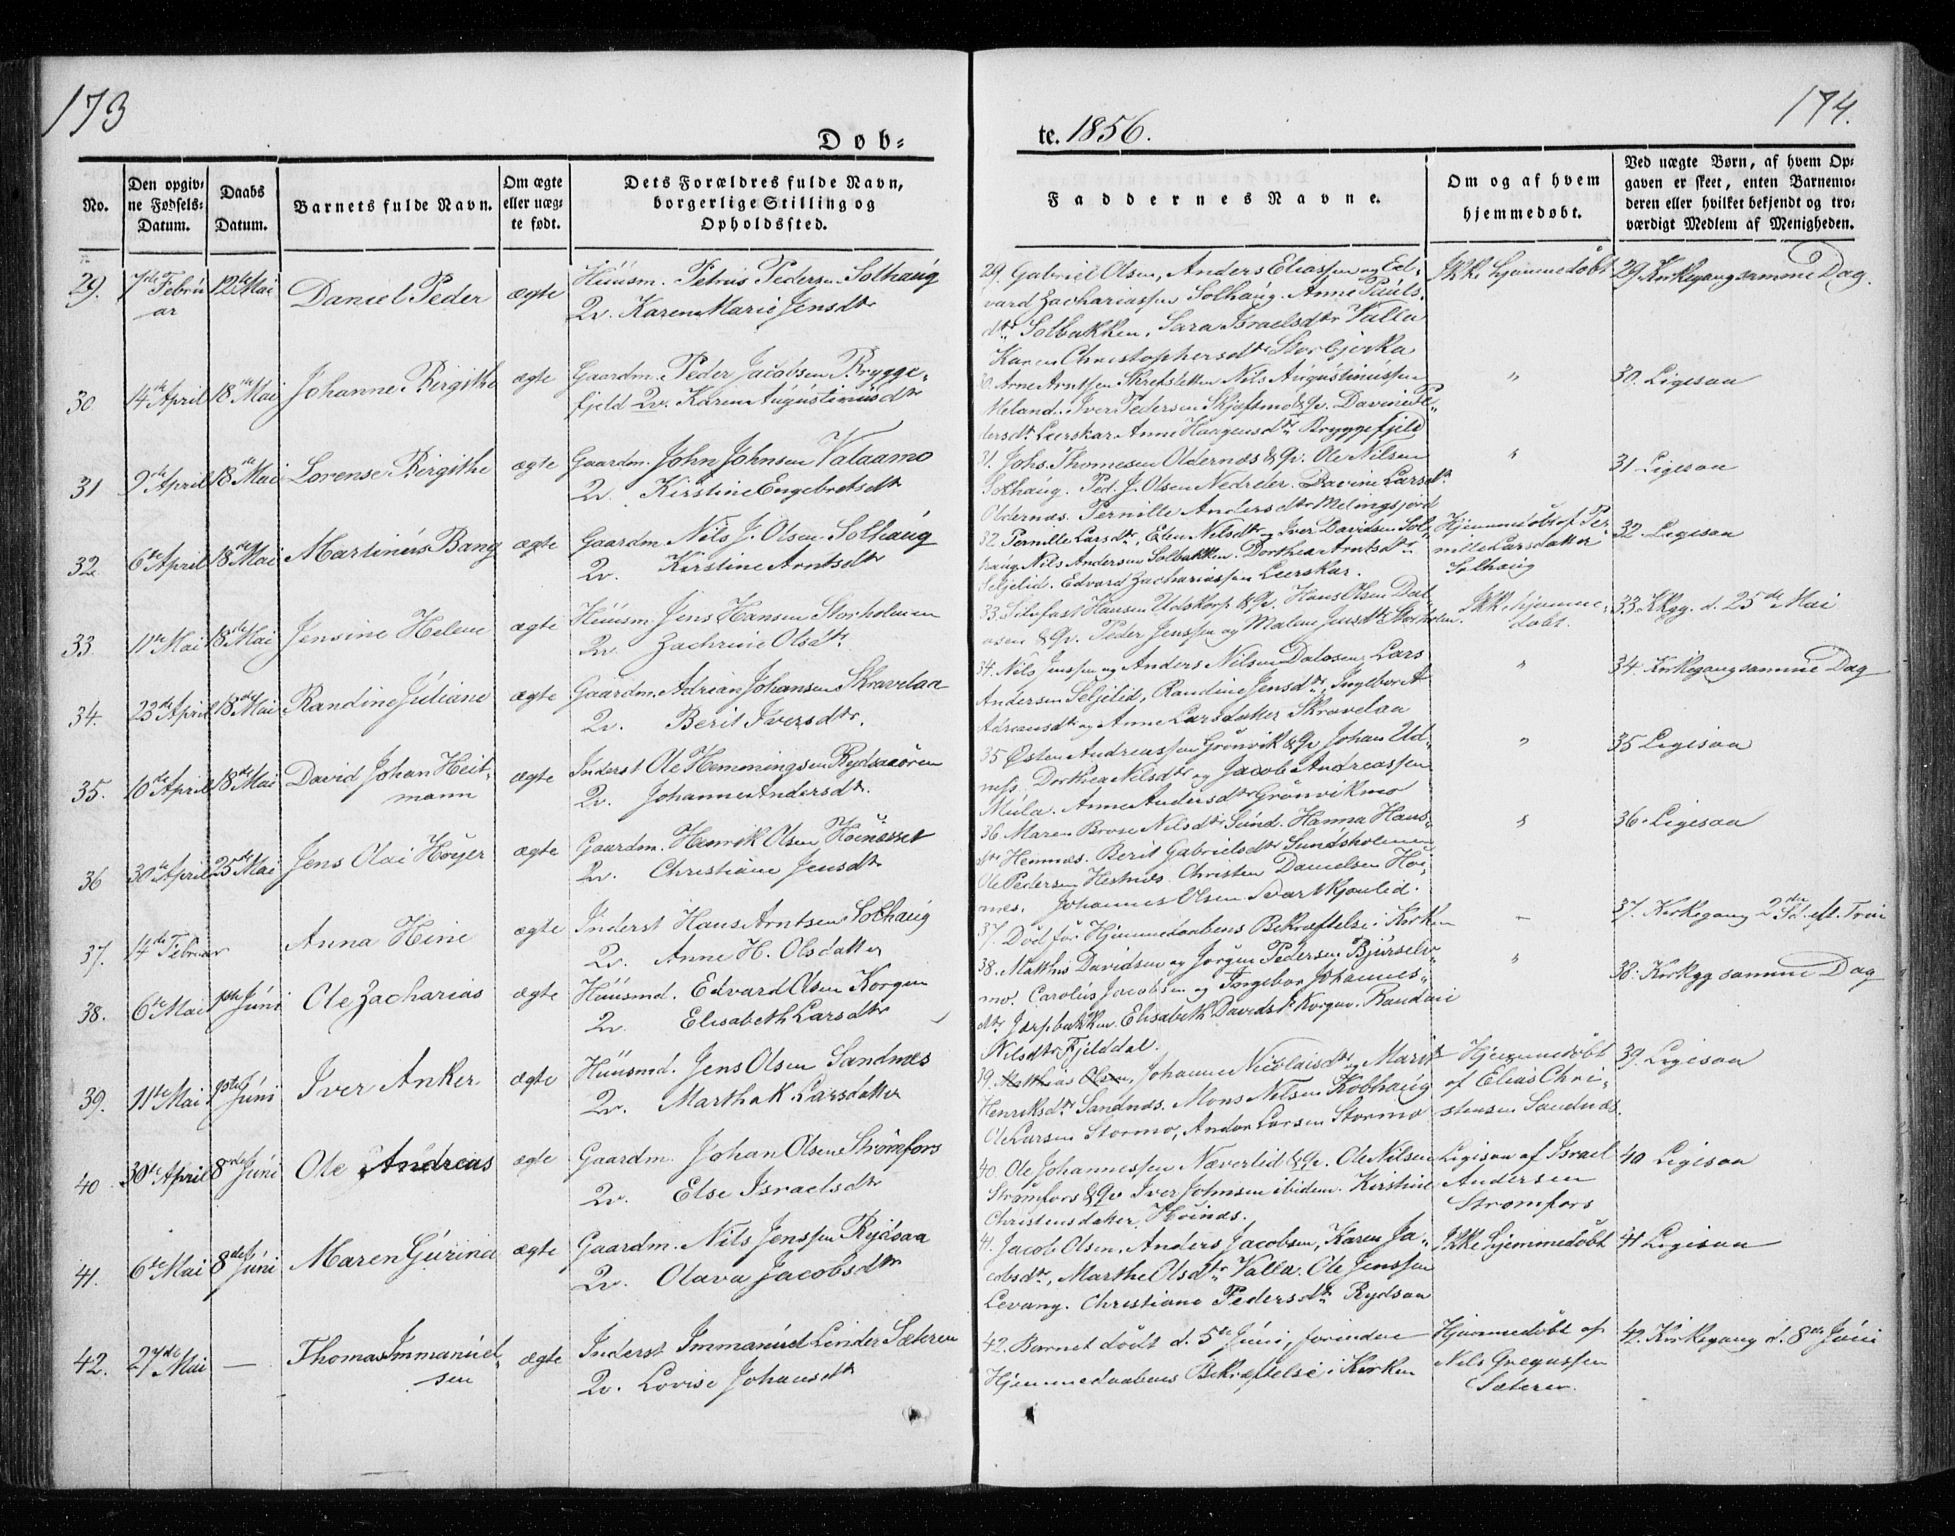 173
174.
Døb-
te. 1856.
No.
Den opgiv-
ne Fødsels-
Datum.
Daabs
Datum.
Barnets fulde Navn.
Om ægte
eller uæg-
te født.
Dets Forældres fulde Navn,
borgerlige Stilling og
Opholdssted.
Faddernes Navne.
Om og af hvem
hjemmedøbt.
Ved uægte Børn, af hvem Op-
gaven er skeet, enten Barnemo-
deren eller hvilket bekjendt og tro-
værdigt Medlem af Menigheden.
29. 7de Febru
ar 12te Mai Daniel Peder ægte Huusm. Petrus Pedersen Solhaug
Qv. Karen Marie Jensdtr
29. Gabriel Olsen, Anders Eliassen og Ed-
vard Zachariassen Solhaug. Anne Pauls-
dtr Solbakken, Sara Israelsdtr Valla
Karen Christophersdtr Storbjerka
Ikke hjemmedøbt
29. Kirkegang samme Dag.
30 14de April 18de Mai Johanne Birgithe ægte Gaardm. Peder Jacobsen Brygge-
fjeld Qv. Karen Augustinusdtr
30. Arne Arntsen Nils Augustinussen
Meland. Iver Pedersen Skjæftmo & Qv. Davine Pe-
dersdtr Leerskar Anne Haagensdtr Bryggefjeld
"
30. Ligesaa
31 2den April 18de Mai Lorense Birgithe ægte Gaardm. John Johnsen Valaamo
Qv. Kirstine Engebretsdtr
31. Johs. Thomesen Oldernæs & Qv. Ole Nilsen
Solhaug. Ped. J. Olsen Nedreler. Davine Larsdtr
Oldernæs. Pernille Andersdtr Melingsjord
"
31 Ligesaa
32. 6te April 18de Mai Martinus Bang ægte Gaardm. Nils J. Olsen Solhaug
Qv. Kirstine Arntsdtr
32. Pernille Larsdtr, Elen Nilsdtr og Iver Davidsen Sol-
haug Nils Andersen Solbakken. Dorthea Arntsdtr
Seljelid. Edvard Zachariassen Leerskar.
Hjemmedøbt af Per
nille Larsdatter
Solhaug
32. Ligesaa
33 11te Mai 18de Mai Jensine Helene ægte Huusm. Jens Hansen Storholmen
Qv. Zachrine Olsdtr.
33. Hansen Udskorp & Qv. Hans Olsen Dal-
osen & Qv. Peder Jenssen og Malene Jensdtr Storholm.
Ikke hjemme-
døbt.
33. Kkgg. d. 25de Mai
34. 23de April 18de Mai Randine Juliane ægte Gaardm. Adrian Johansen Skravelaa
Qv. Berit Iversdtr.
34. Nils Jenssen og Anders Nilsen Dalosen, Lars
Andersen Seljelid, Randine Jensdtr, Ingebor A
driansdtr og Anne Larsdatter Skravelaa
"
34. Kirkegang samme Dag
35. 10de April 18de Mai David Johan Heit-
mann ægte Inderst Ole Hemmingsen Rydsaaören
Qv. Johanne Andersdtr.
35 Østen Andreassen Grönvik & Qv. Johan Ud-
næss. Dorthea Nilsdtr og Jacob Andreassen
Mula. Anne Andersdtr Grönvikmo
"
35 Ligesaa
36 30de April 25de Mai Jens Olai Höyer ægte Gaardm. Henrik Olsen Höinæsset
Qv. Christiane Jensdtr
36 Maren Brose Nilsdtr Sund. Hanna Hans-
dtr Hemnæs. Berit Gabrielsdtr Sundsholmen
Ole Pedersen Hestnæs. Christen Danielsen Höi-
næs. Johannes Olsen Svartkjønlid.
"
36. Ligesaa
37. 14de Februar Anna Hine ægte Inderst Hans Arntsen Solhaug
Qv. Anne H. Olsdatter
37. Död før Hjemmedaabens Bekræftelse i Kirken
-
37. Kirkegang 2den Sd. eft. Trin
38. 6te Mai 1ste Juni Ole Zacharias ægte Huusmd. Edvard Olsen Korgen
Qv. Elisabeth Larsdtr
38. Matthis Davidsen og Jörgen Pedersen Bjurselv-
mo. Carolus Jacobsen og Ingebor Johannes-
dtr Jerpbakken. Elisabeth Davidsdtr Korgen. Randine
Nilsdtr Fjelddal.
"
38. Kirkgg samme Dag
39. 11te Mai 1ste Juni Iver Anker ægte Huusmd. Jens Olsen Sandnæs
Qv. Martha K. Larsdatter
39. Matthias Olsen, Johanne Nicolaisdtr og Marit
Henriksdtr Sandnæs. Mons Nilsen Kobhaug
Ole Larsen Stormo, Anders Larsen Stormo
Hjemmedøbt
af Elias Chri-
stensen Sandnæs.
39. Ligesaa
40. 30te April 8de Juni Ole Andreas ægte Gaardm. Johan Olsen Strömfors
Qv. Else Israelsdtr
40. Ole Johannessen Næverlid & Qv. Ole Nilsen
Strømfors & Qv. Iver Johnsen ibidem. Kirstine
Christensdatter Höinæs.
Ligesaa af Israel
Andersen
Strømfors
40 Ligesaa
41. 6te Mai 8de Juni Maren Gurina ægte Gaardm. Nils Jenssen Rydsaa
Qv. Olava Jacobsdtr
41. Jacob Olsen, Anders Jacobsen, Karen Ja-
cobsdtr, Marthe Olsdtr Valla. Ole Jenssen
Levang. Christiane Pedersdtr Rydsaa
Ikke hjemmedøbt
41 Ligesaa
42. 27de Mai — Thomas Immanuel-
sen ægte Inderst Immanuel Linder Sæteren
Qv. Lovise Johansdtr
42. Barnet dödt d. 5te Juni, forinden
Hjemmedaabens Bekræftelse i Kirken
Hjemmedøbt af
Nils Gregussen
Sæteren.
42. Kirkegang d. 8de Juni